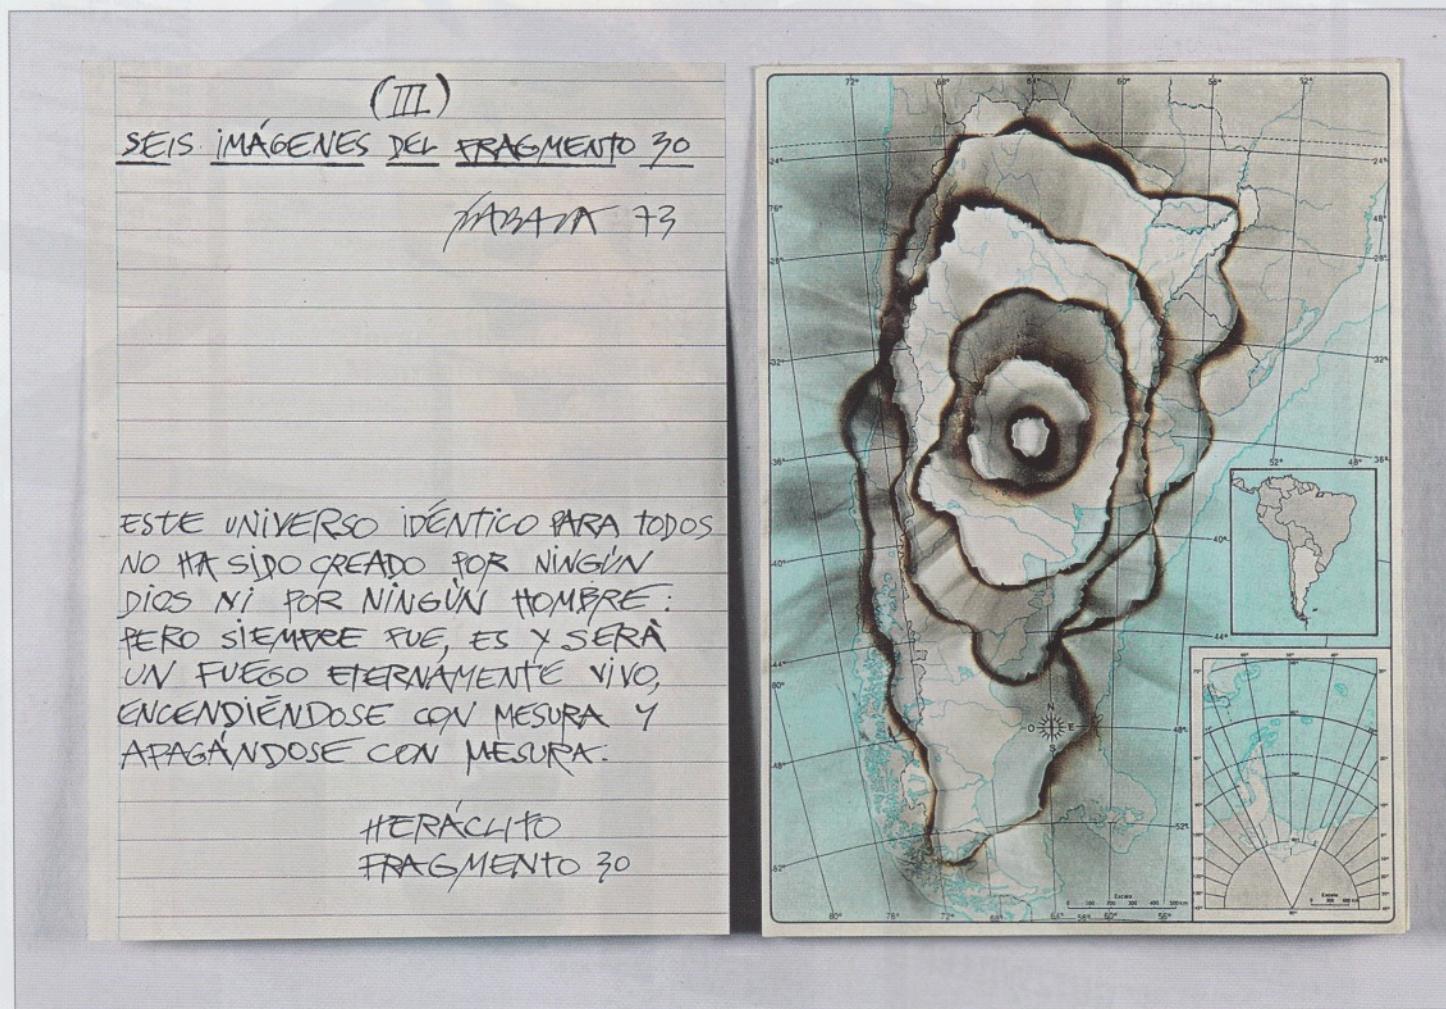 (III)
SEIS IMÁGENES DEL FRAGMENTO 30
ZABALA 73
ESTE UNIVERSO IDÉNTICO PARA TODOS
NO HA SIDO CREADO POR NINGÚN
DIOS NI POR NINGÚN HOMBRE:
PERO SIEMPRE FUE, ES Y SERÁ
UN FUEGO ETERNAMENTE VIVO,
ENCENDIÉNDOSE CON MESURA Y
APAGÁNDOSE CON MESURA.
HERÁCLITO
FRAGMENTO 30
72° 68° 64° 60° 56° 52°
24° 24°
28°
28°
32° 32°
36° 36°
52° 48°
40°
40°
44°
44°
N
O E
S
48°
48°
52°
52°
Escala
0 100 200 300 400 500 km
80° 76° 72° 68° 64° 60° 56°
Escala